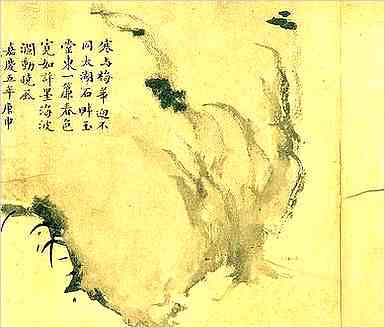 寒与梅華迎不
同太湖石畔玉
堂東一簾春色
寛如許墨海波
瀾動曉風
嘉慶五年庚申